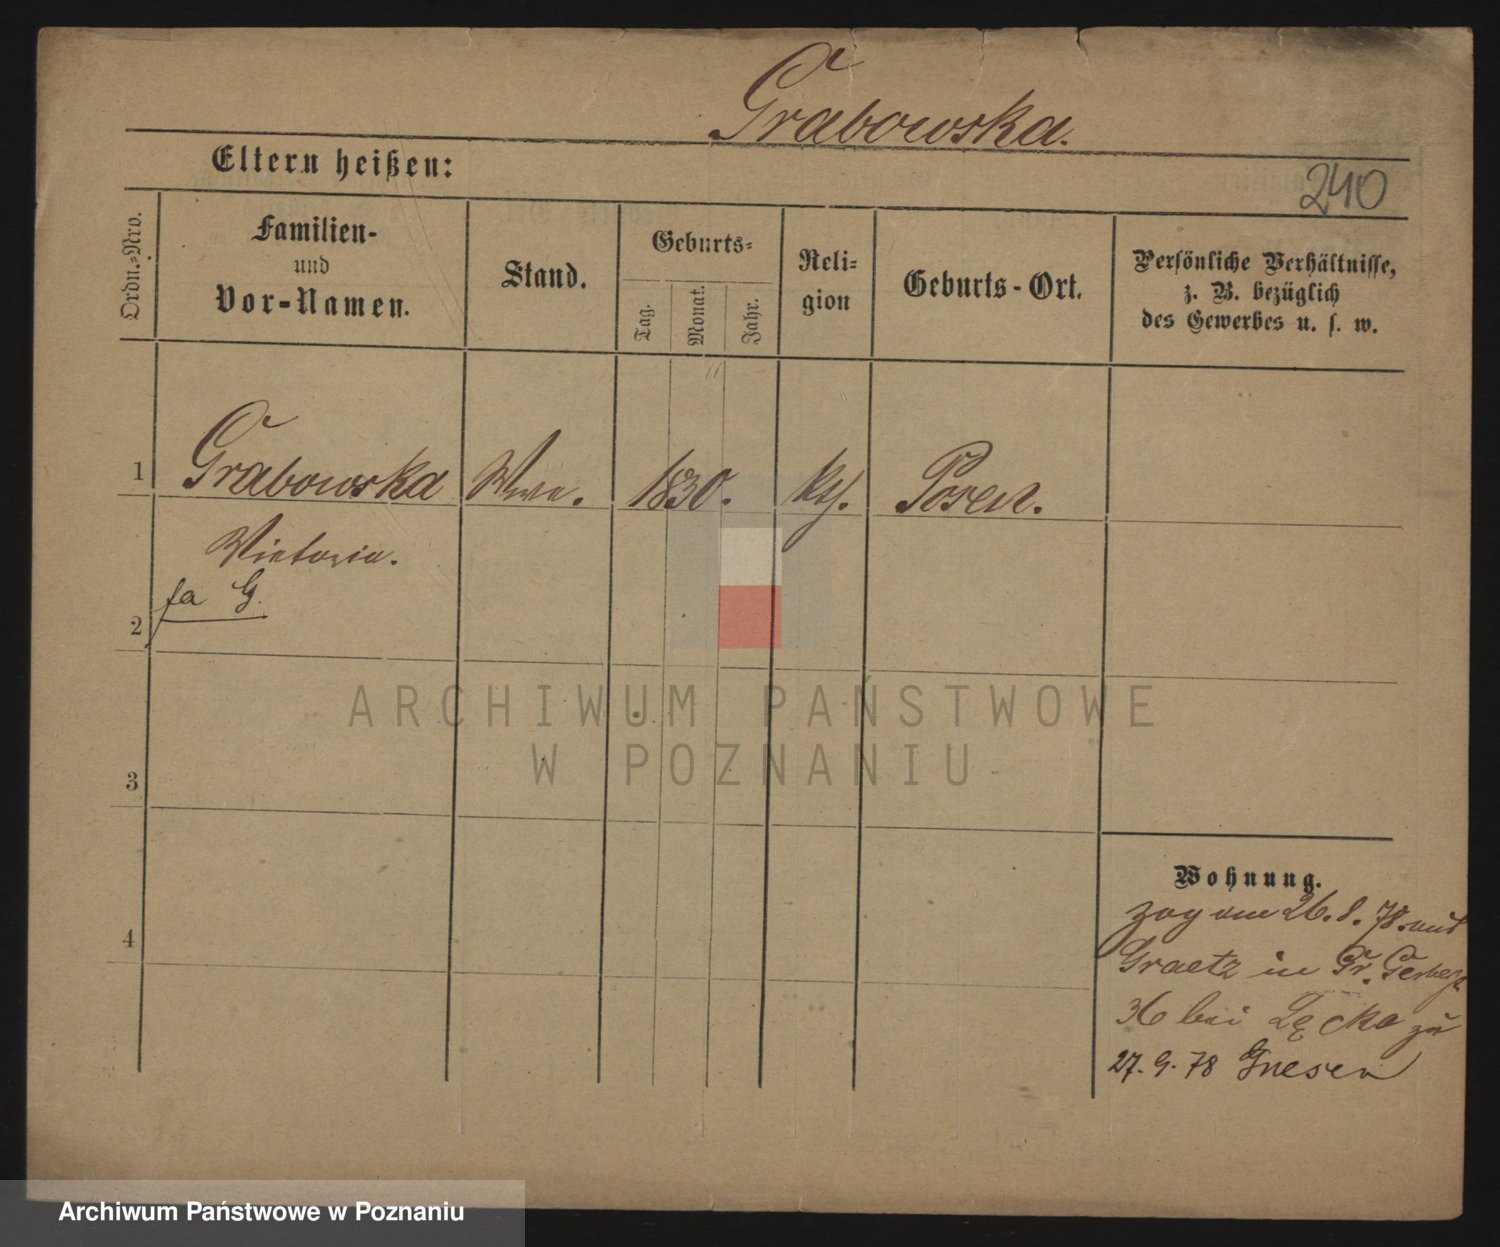 Grabowska.
Eltern heißen:
240
Ordn.=Nro.
Familien-
und
Vor-Namen.
Stand.
Geburts=
Tag.
Monat.
Jahr.
Reli=
gion
Geburts-Ort.
Persönliche Verhältnisse,
z. B. bezüglich
des Gewerbes u. s. w.
1 Grabowska Wwe. 1830. kth. Posen.
Victoria.
fa G.
2
3
4
Wohnung.
zog am 26. 8. 78. aus
Graetz in Gr. Gerberst.
36 bei Łęcka zu
27. 9. 78 Gnesen
ARCHIWUM PAŃSTWOWE
W POZNANIU
Archiwum Państwowe w Poznaniu